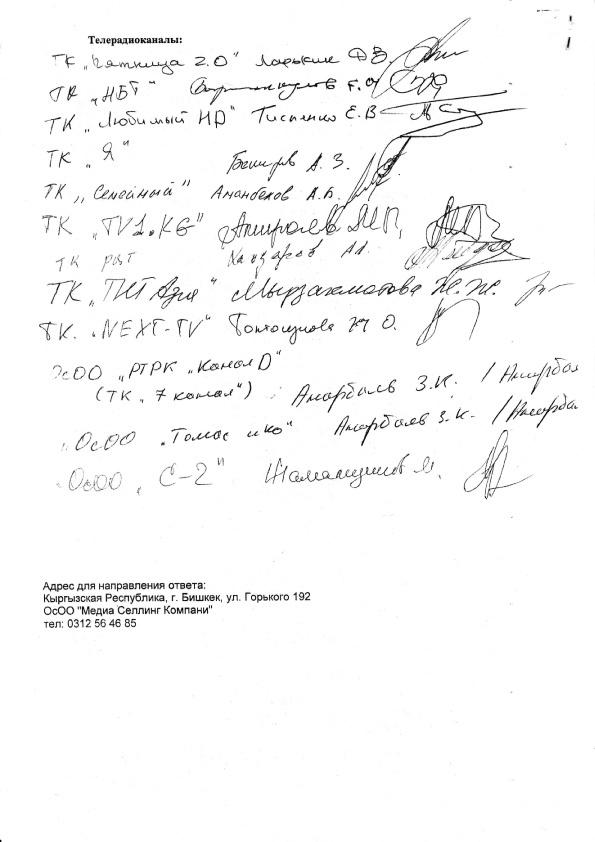 Телерадиоканалы:
ТК „Пятница 2.0" Ларькин Д.В.
ТК „НБТ"
ТК „Любимый HD" Тисленко Е.В
ТК „Я" Баширов А. З.
ТК „Семейный" Аманбеков А.Б.
ТК „TV1.KG"
ТК РЦТ А.А.
ТК „ПИ Азия" Мырзахматова Ж.Ж.
ТК. „NEXT-TV" О.
ОсОО „РТРК „Канал D"
(ТК „7 канал") Анарбаев З.К. / Анарбаев
ОсОО „Томас и Ко" Анарбаев З.К. / Анарбаев
ОсОО „С-2" М.
Адрес для направления ответа:
Кыргызская Республика, г. Бишкек, ул. Горького 192
ОсОО "Медиа Селлинг Компани"
тел: 0312 56 46 85